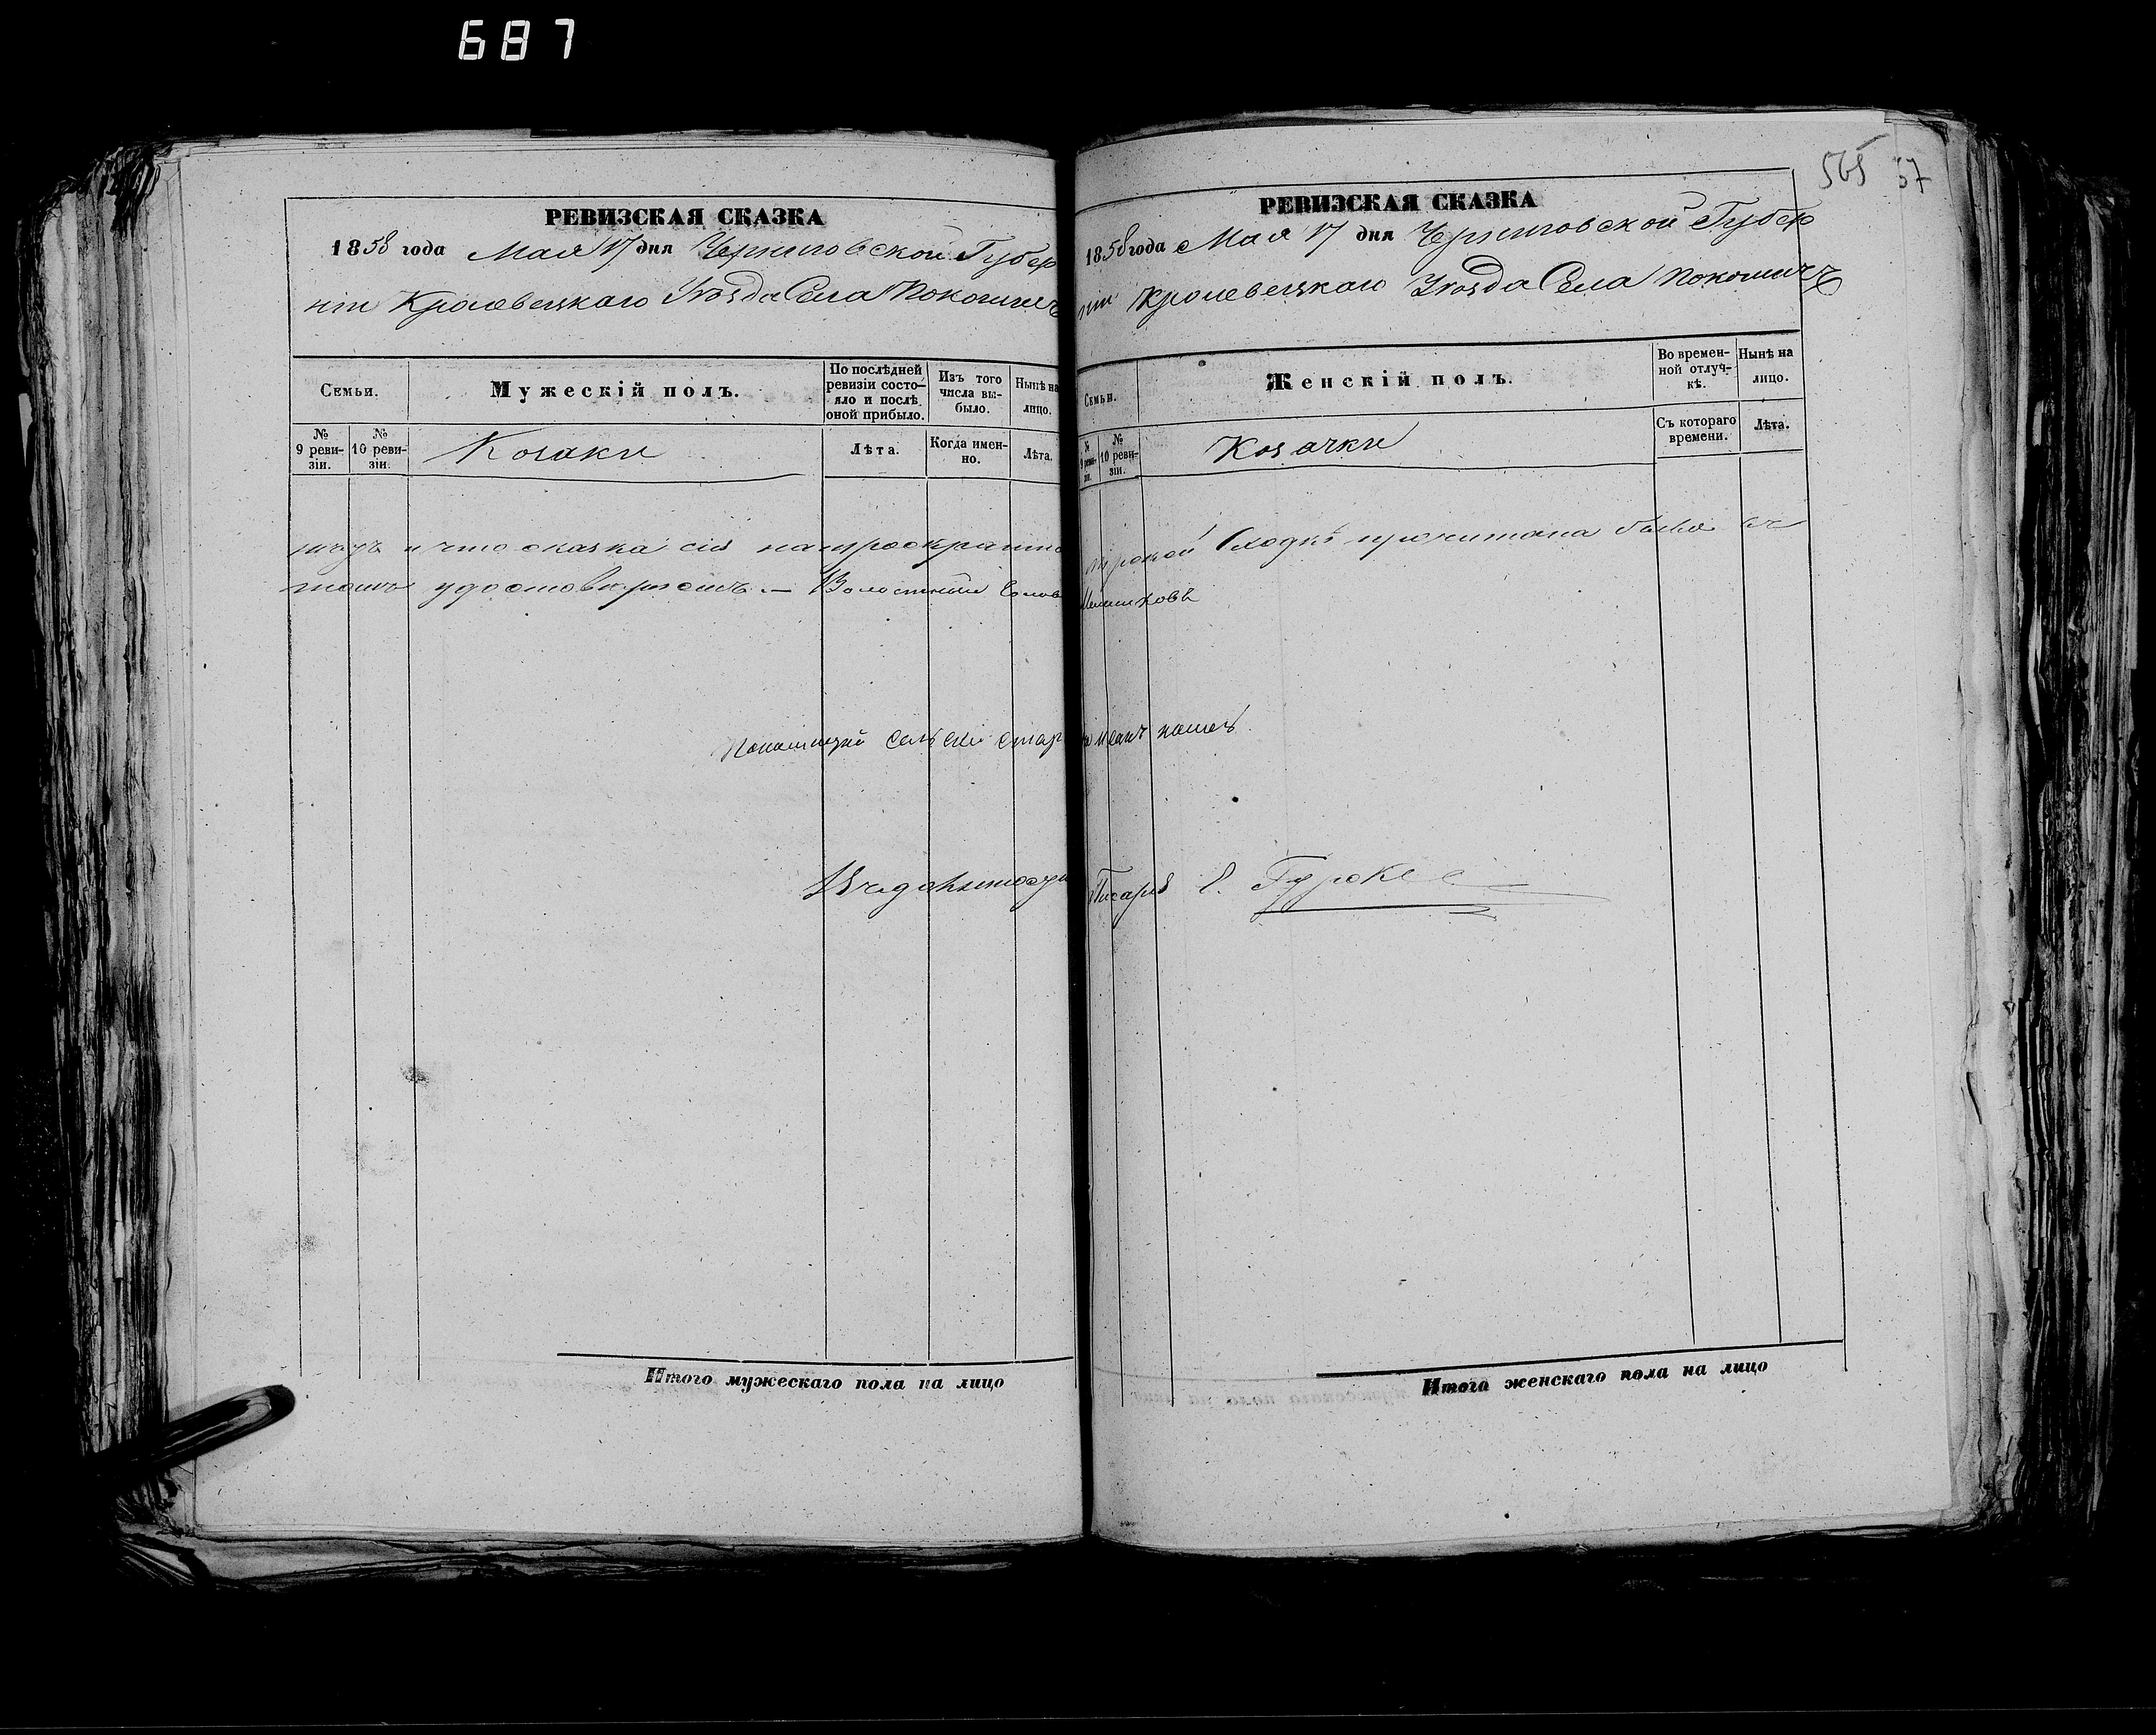 687
РЕВИЗСКАЯ СКАЗКА
1858 года Мая 17 дня Черниговской Губер
ніи Кролевецкаго Уѣзда Села Покошичъ
Семьи.
Мужескій полъ.
По послѣдней ревизіи состо-
яло и послѣ оной прибыло.
Изъ того числа вы-
было.
Нынѣ на лицо.
№ 9 реви-
зіи.
№ 10 реви-
зіи.
Козаки
Лѣта.
Когда имен-
но.
Лѣта.
и что сказка сія на троекратно
томъ удостовѣряемъ. — Волостный Голов
сельскій стар
Итого мужескаго пола на лицо
565 57
РЕВИЗСКАЯ СКАЗКА
1858 года Мая 17 дня Черниговской Губер
ніи Кролевецкаго Уѣзда Села Покошичъ
Семьи.
Женскій полъ.
Во времен-
ной отлуч-
кѣ.
Нынѣ на лицо.
№ 9 реви-
зіи.
№ 10 реви-
зіи.
Козачки
Съ котораго времени.
Лѣта.
Сходкѣ прочитана была въ
Писарь
Итого женскаго пола на лицо